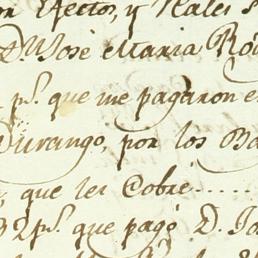 Efectos, y Reales
Dn. José Maria
ps. que me pagaron
Durango, por los
que les Cobré......
2 ps. que pagó D.